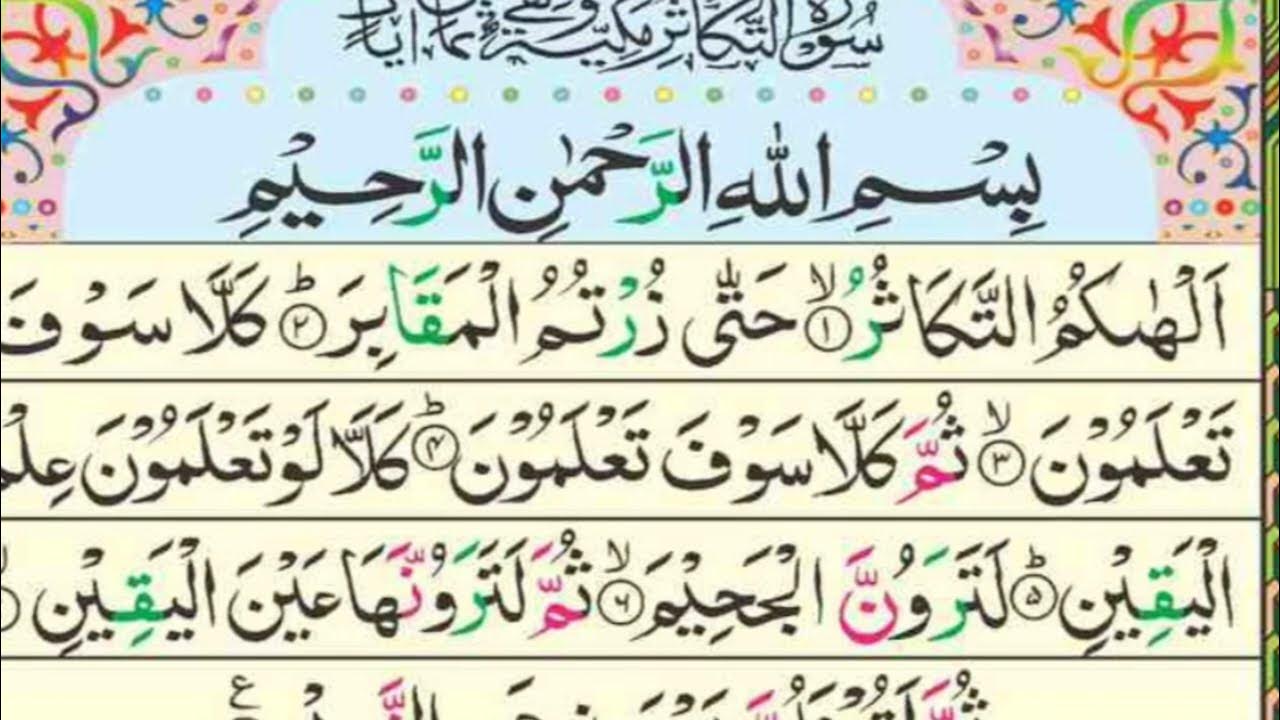 سُوْرَةُ التَّكَاثُرِ مَكِّيَّةٌ وَّهِيَ ثَمَانُ اٰيَاتٍ
بِسْمِ اللّٰهِ الرَّحْمٰنِ الرَّحِيْمِ
اَلْهٰىكُمُ التَّكَاثُرُ ۙ﴿۱﴾ حَتّٰى زُرْتُمُ الْمَقَابِرَ ؕ﴿۲﴾ كَلَّا سَوْفَ
تَعْلَمُوْنَ ۙ﴿۳﴾ ثُمَّ كَلَّا سَوْفَ تَعْلَمُوْنَ ؕ﴿۴﴾ كَلَّا لَوْ تَعْلَمُوْنَ عِلْمَ
الْيَقِيْنِ ؕ﴿۵﴾ لَتَرَوُنَّ الْجَحِيْمَ ۙ﴿۶﴾ ثُمَّ لَتَرَوُنَّهَا عَيْنَ الْيَقِيْنِ ۙ